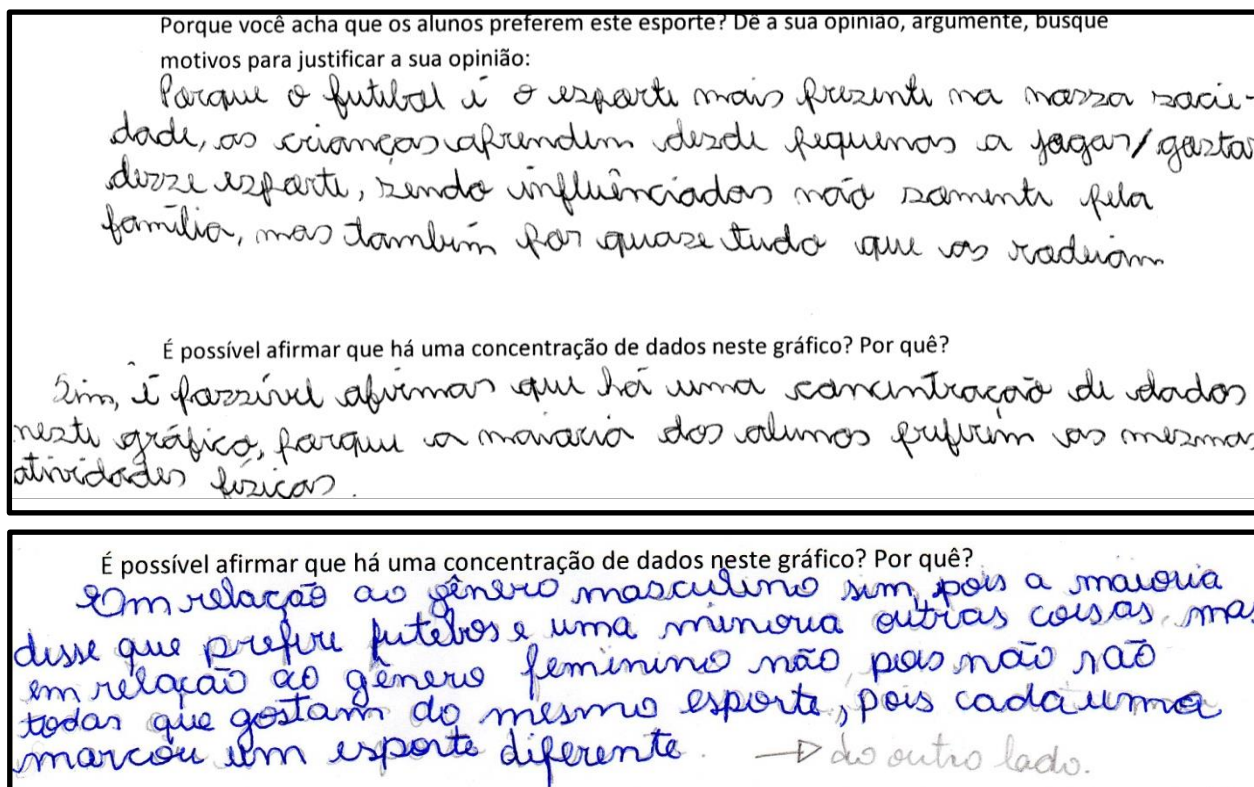 Porque você acha que os alunos preferem este esporte? Dê a sua opinião, argumente, busque
motivos para justificar a sua opinião:
Porque o futebol é o esporte mais prezente na nossa socie-
dade, as crianças aprendem desde pequenas a jogar/gostar
desse esporte, sendo influênciadas não somente pela
família, mas também por quase tudo que as rodeiam
É possível afirmar que há uma concentração de dados neste gráfico? Por quê?
Sim, é possível afirmar que há uma concentração de dados
neste gráfico, porque a maioria dos alunos preferem as mesmas
atividades físicas.
É possível afirmar que há uma concentração de dados neste gráfico? Por quê?
Em relação ao gênero masculino sim, pois a maioria
disse que prefere futebos e uma minoria outras coisas, mas
em relação ao gênero feminino não pois não são
todas que gostam do mesmo esporte, pois cada uma
marcou um esporte diferente. → do outro lado.